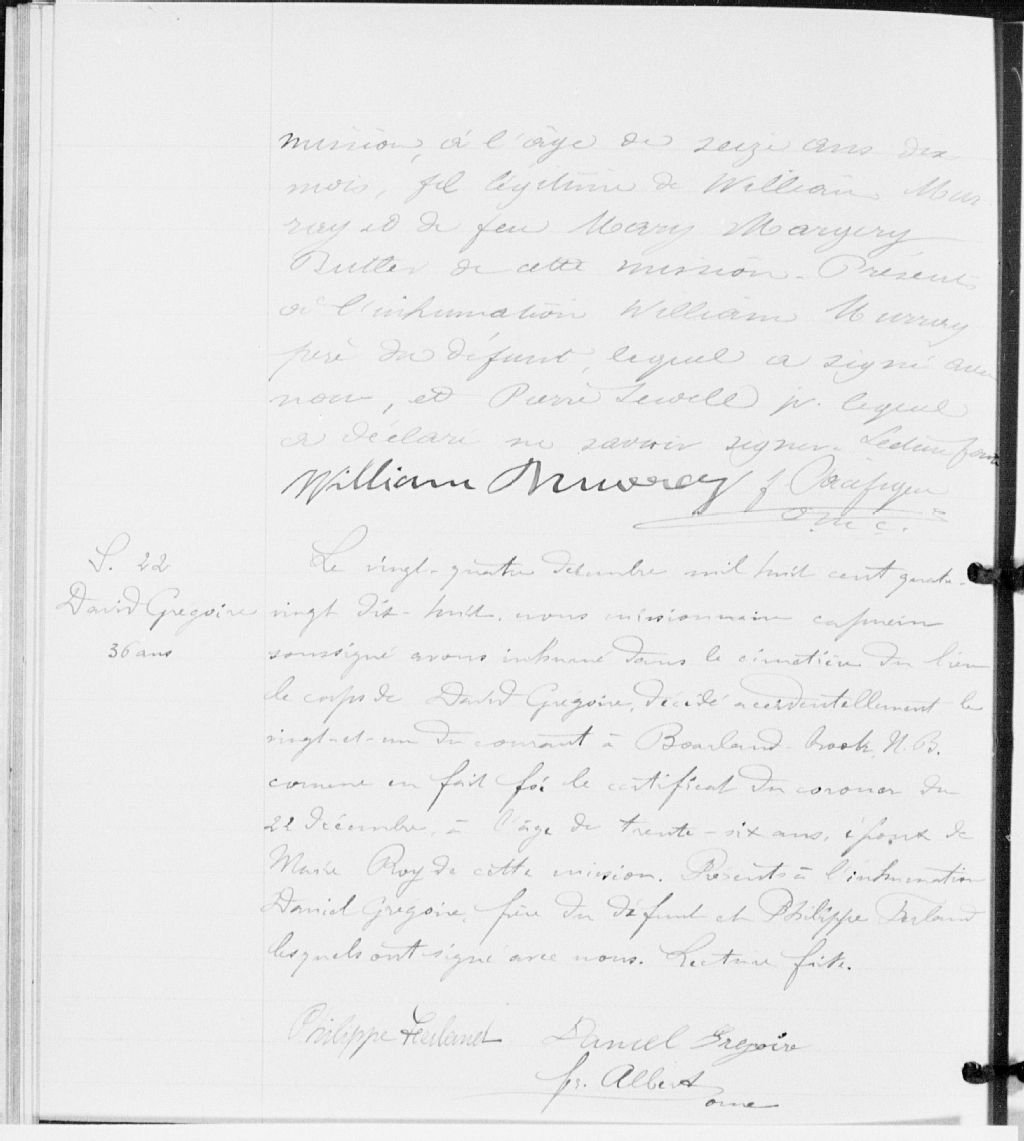 mission, à l'âge de seize ans dix
mois, fil légitime de William Mur
ray et de feu Mary Margery
Butler de cette mission. Présents
à l'inhumation William Murray
père du défunt, lequel a signé avec
nous, et Pierre Sewell jr. lequel
a déclaré ne savoir signer. Lecture faite
William Murray f Pacifique
o.m.c.
S. 22
David Gregoire
36 ans
Le vingt-quatre décembre mil huit cent quatre-
vingt dix-huit, nous missionnaire capucin
soussigné avons inhumé dans le cimetière du lieu
le corps de David Grégoire, décédé accidentellement le
vingt-et-un du courant à Boarland-brook, N.B.
comme en fait foi le certificat du coroner du
22 décembre, à l'âge de trente-six ans, époux de
Marie Roy de cette mission. Présents à l'inhumation
Daniel Gregoire, frère du défunt et Philippe Ferland
lesquels ont signé avec nous. Lecture faite.
Philippe Ferland Daniel Gregoire
fr. Albert
omc